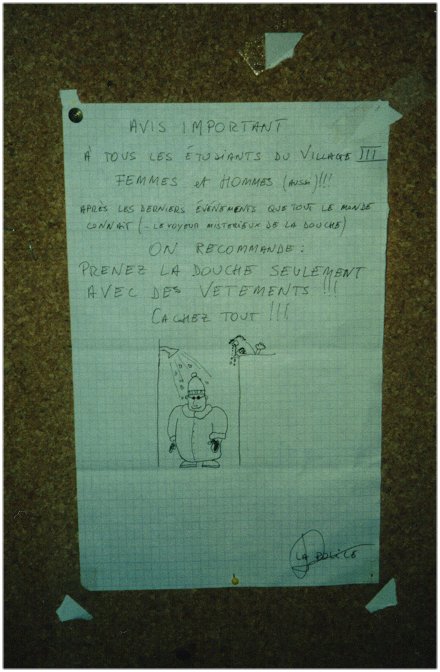 AVIS IMPORTANT
À TOUS LES ÉTUDIANTS DU VILLAGE III
FEMMES et HOMMES (AUSSI)!!!
APRÈS LES DERNIERS ÉVÉNEMENTS QUE TOUT LE MONDE
CONNAIT (- LE VOYEUR MISTERIEUX DE LA DOUCHE)
ON RECOMMANDE:
PRENEZ LA DOUCHE SEULEMENT
AVEC DES VETEMENTS !!!
CACHEZ TOUT !!!
LA POLICE